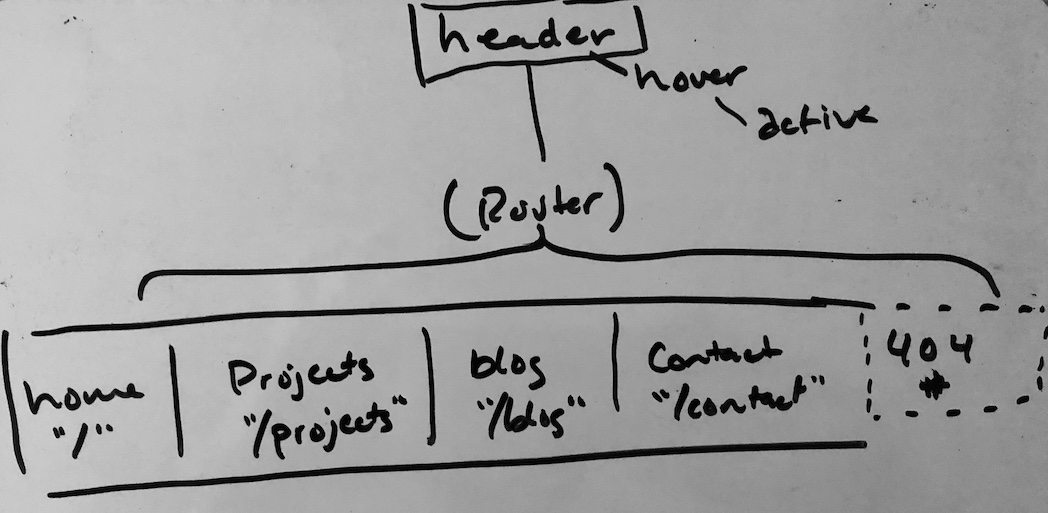 header
hover
active
(Router)
home
"/"
Projects
"/projects"
blog
"/blog"
Contact
"/contact"
404